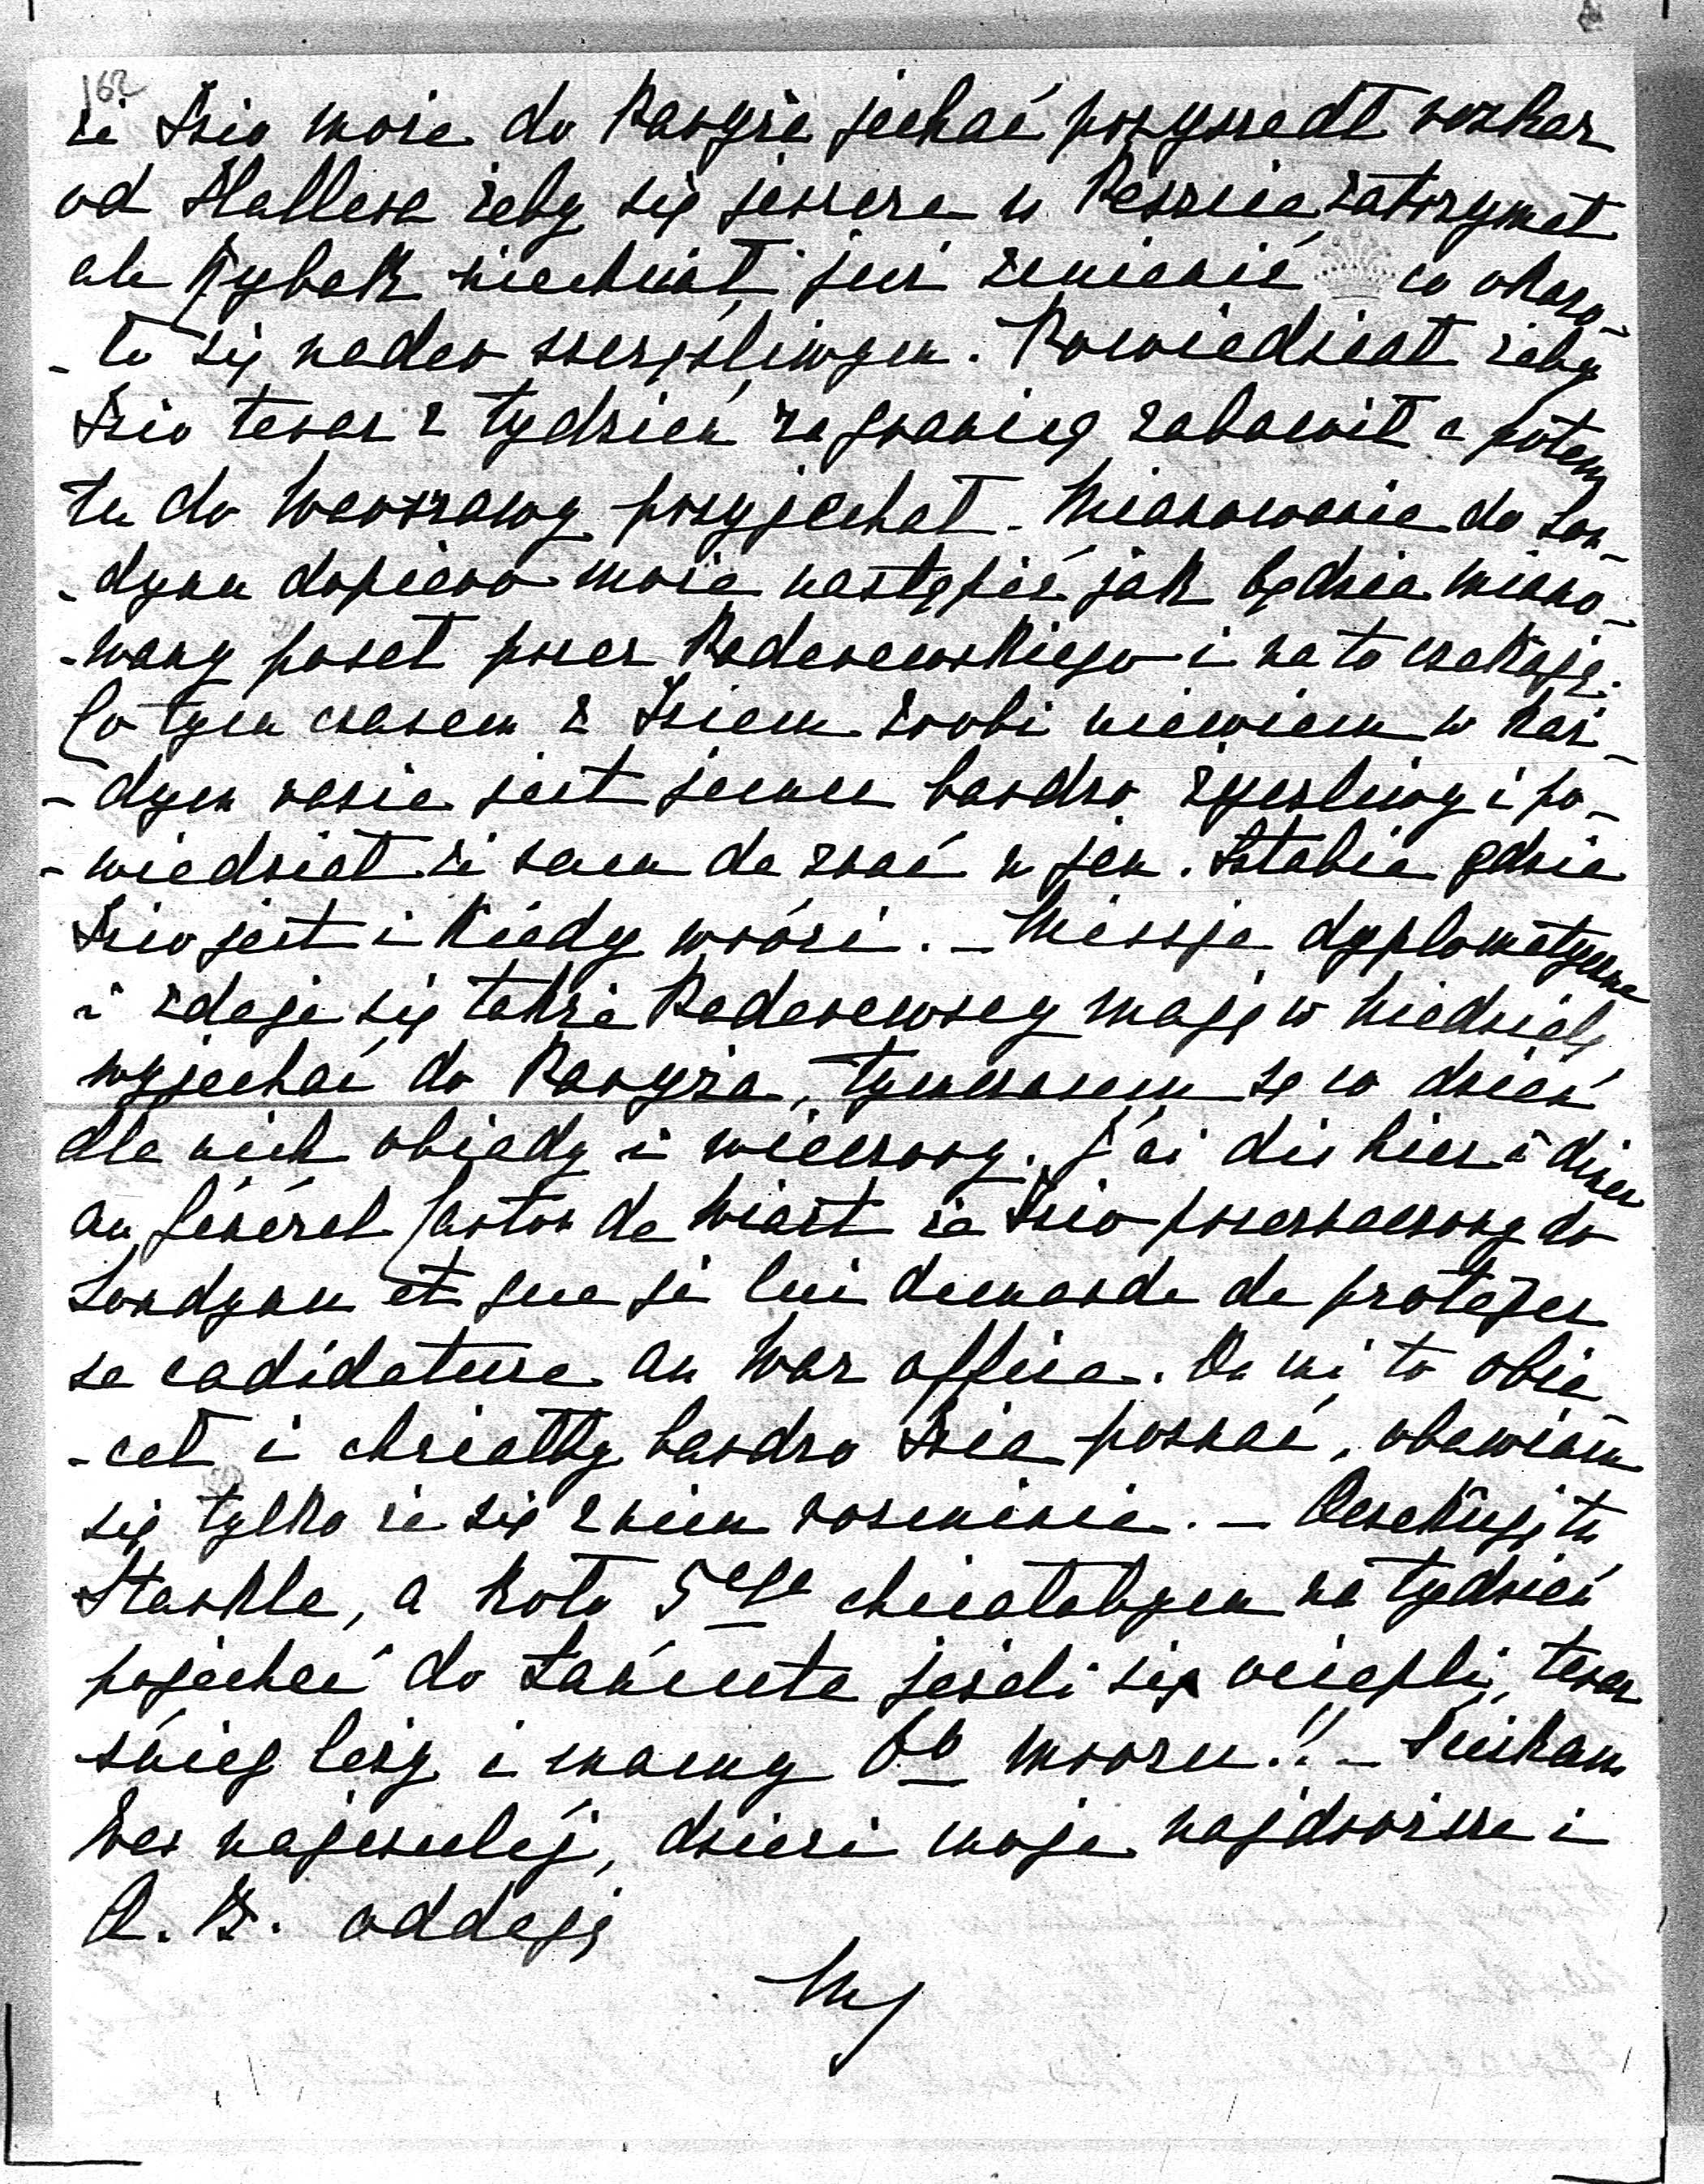 162
że Izio może do Paryża jechać przyszedł rozkaz
od Hallera żeby się jeszcze w Peszcie zatrzymał
ale Rybak niechciał już zmienić co okaza-
-ło się nader szczęśliwym. Powiedział żeby
Izio teraz z tydzień zagranicą zabawił a potem
tu do Warszawy przyjechał. Mianowanie do Lon-
-dynu dopiero może nastąpić jak będzie miano-
-wany poseł przez Paderewskiego i na to czekają.
Co tym czasem z Iziem zrobi niewiem w każ-
-dym razie jest jemu bardzo życzliwy i po-
-wiedział że sam da znać w jen. Sztabie gdzie
Izio jest i kiedy wróci. – Missja dyplomatyczna
i zdaje się także Paderewscy mają w Niedzielę
wyjechać do Paryża, tymczasem są co dzień
dla nich obiady i wieczory. J'ai dit hier à diner
au Général Carton de Wiart że Izio przeznaczony do
Londynu et que je lui demande de protéger
sa cadidature au War office. On mi to obie-
-cał i chciałby bardzo Izia poznać, obawiam
się tylko że się z niem rozminie. – Oczekuję tu
Stasskla, a koło 5ego chciałabym na tydzień
pojechać do Łańcuta jeżeli się ociepli, teraz
śnieg leży i mamy 6o mrozu!! – Ściskam
Was najczulej, dzieci moje najdroższe i
O. B. oddaję
M